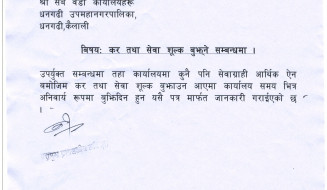 श्री सबै वडा कार्यालयहरू
धनगढी उपमहानगरपालिका,
धनगढी,कैलाली
विषयः कर तथा सेवा शूल्क बुझ्ने सम्बन्धमा ।
उपर्युक्त सम्बन्धमा तहा कार्यालयमा कुनै पनि सेवाग्राही आर्थिक ऐन
बमोजिम कर तथा सेवा शूल्क बुझाउन आएमा कार्यालय समय भित्र
अनिवार्य रूपमा बुझिदिन हुन यसै पत्र मार्फत जानकारी गराईएको छ
।